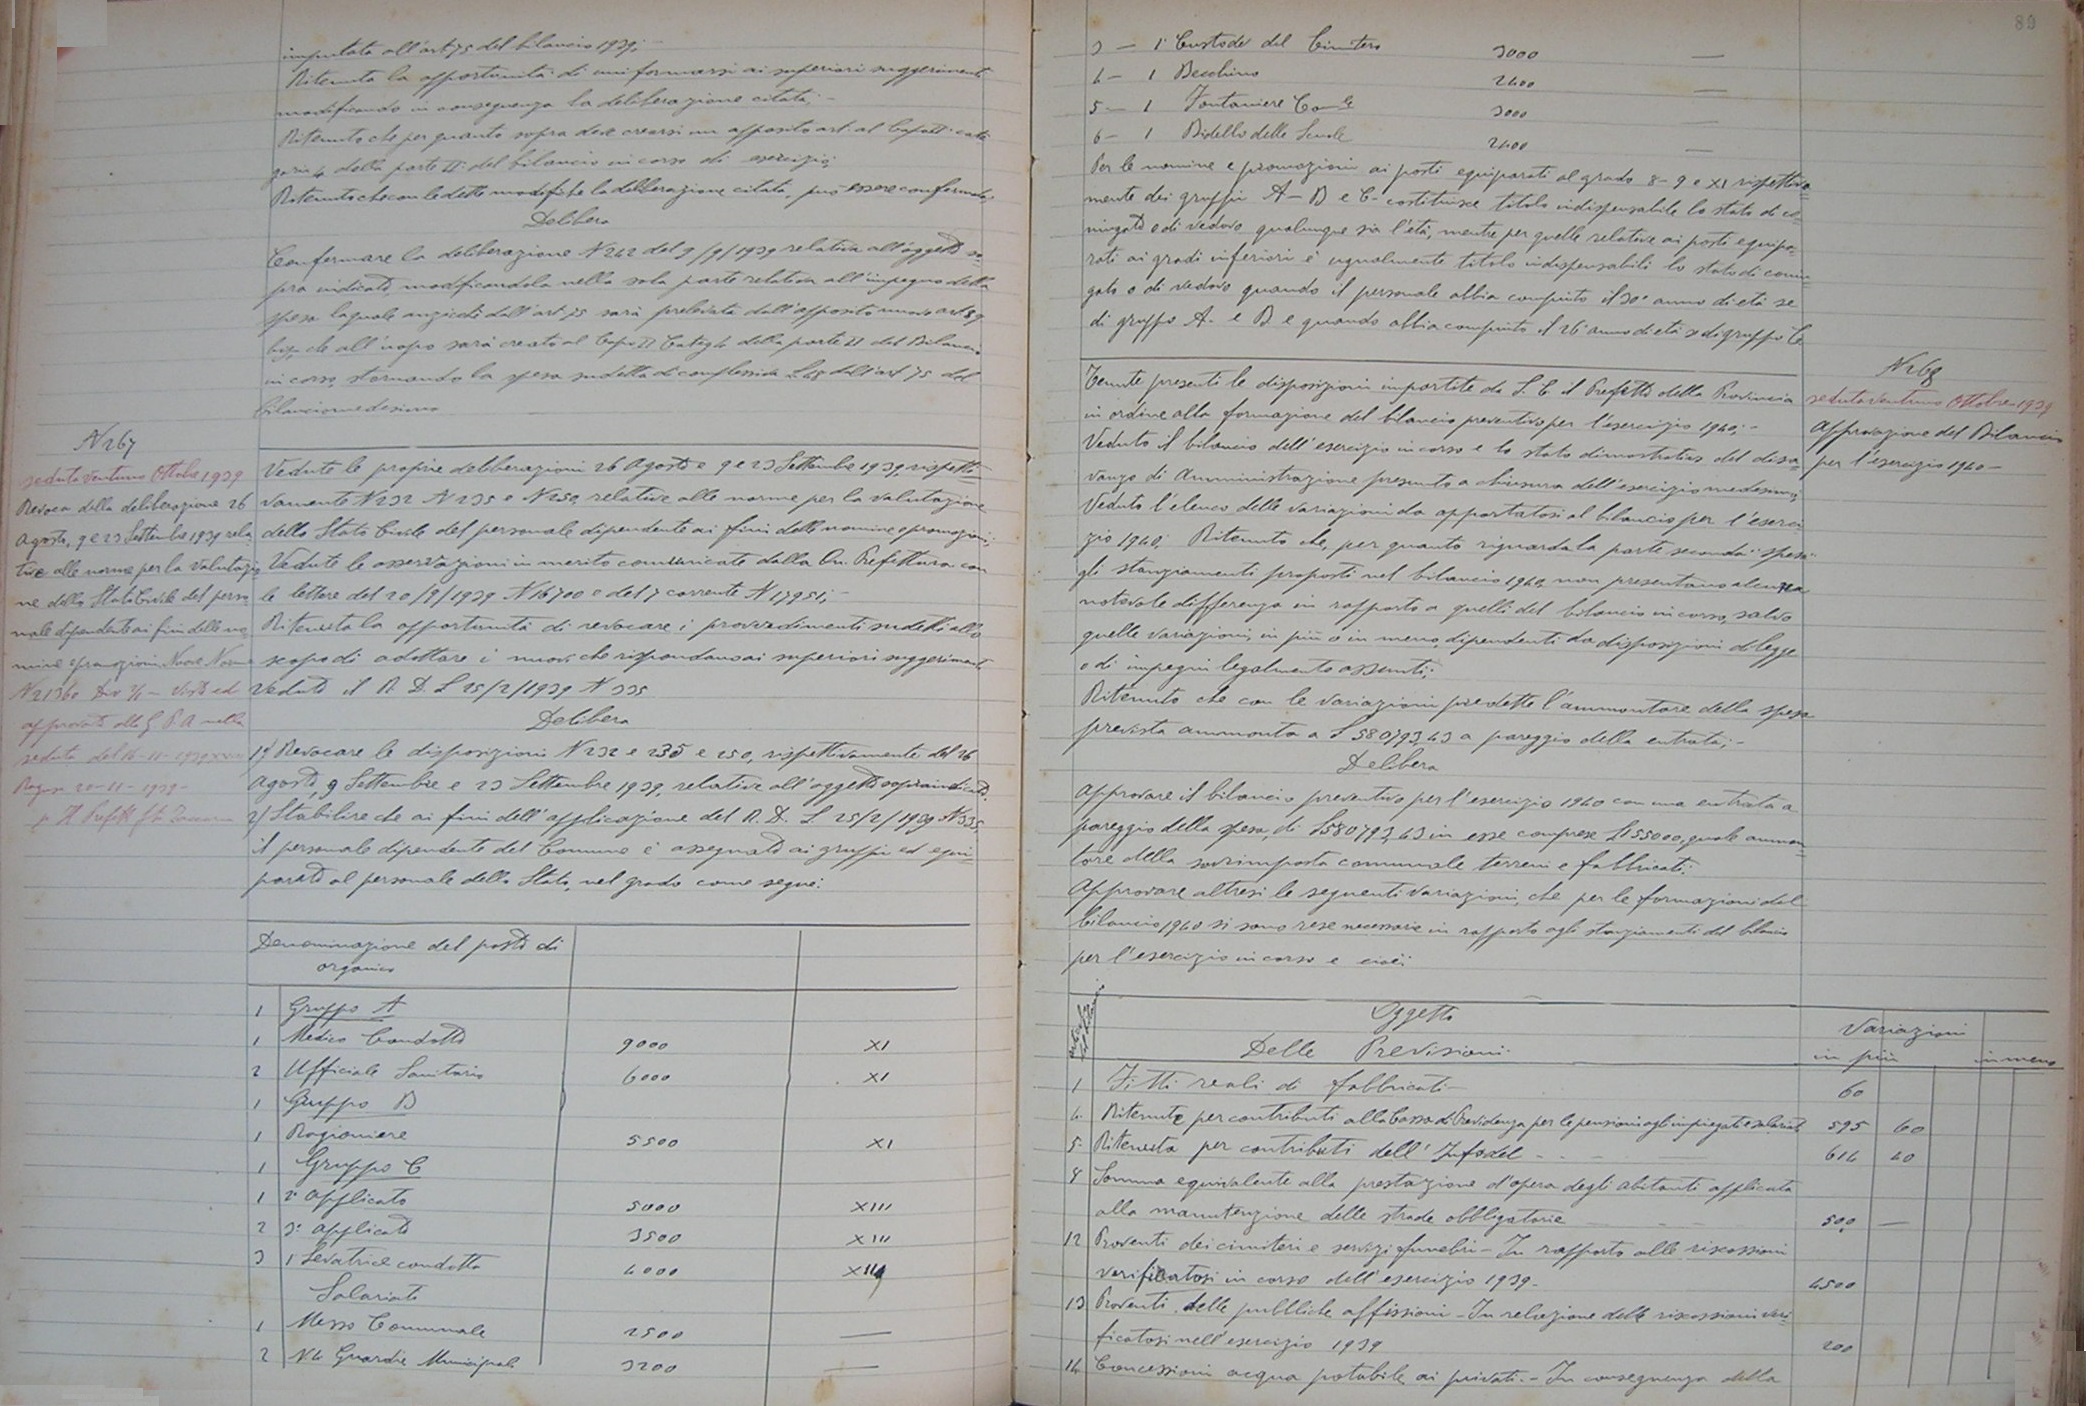 imputata all'art 75 del bilancio 1939;
Ritenuta la opportunità di uniformarsi ai superiori suggerimenti
modificando in conseguenza la deliberazione citata; -
Ritenuto che per quanto sopra deve crearsi un apposito art. al Capo II cate
goria 4 della parte II del bilancio in corso di esercizio;
Ritenuto che con le dette modifiche la deliberazione citata, può essere confermata;
Delibera
Confermare la deliberazione N 242 del 9/9/1939 relativa all'oggetto so
pra indicato, modificandola nella sola parte relativa all'impegno della
spesa la quale anzicché dall'art 75 sarà prelevata dall'apposito nuovo art 89
bis, che all'uopo sarà creato al Capo II Categ 4 della parte II del Bilancio
in corso, stornando la spesa sudetta di complessive L 48 dall'art 75 del
bilancio medesimo
N 267
seduta ventuno Ottobre 1939
Revoca della deliberazione 26
Agosto, 9 e 23 Settembre 1939 rela
tive alle norme per la valutazio
ne dello Stato Civile del perso
nale dipendente ai fini delle no
mine e promozioni Nuove Norme
N 21360 Div 2/1 - Visto ed
approvato dalla G P A nella
seduta del 16-11-1939 XVIII
Ragusa 20-11-1939-
p Il Prefetto
Vedute le proprie deliberazioni 26 Agosto e 9 e 23 Settembre 1939, rispetti
vamente N 232 N 235 e N 250, relative alle norme per la valutazione
dello Stato Civile del personale dipendente ai fini delle nomine e promozioni;
Vedute le osservazioni in merito comunicate dalla On. Prefettura con
le lettere del 20/9/1939 N 16700 e del 7 corrente N 17951; -
Ritenuta la opportunità di revocare i provvedimenti sudetti allo
scopo di adottare i nuovi che rispondano ai superiori suggerimenti
Veduto il R. D. L 25/2/1939 N 335
Delibera
1°) Revocare le disposizioni N 232 e 235 e 250, rispettivamente del 26
Agosto, 9 Settembre e 23 Settembre 1939, relative all'oggetto sopraindicato.
2) Stabilire che ai fini dell'applicazione del R. D. L. 25/2/1939 N 335
il personale dipendente del Comune è assegnato ai gruppi ed equi-
parato al personale dello Stato, nel grado come segue:
Denominazione del posto di
organico
1 Gruppo A
1 Medico Condotto 9000 XI
2 Ufficiale Sanitario 6000 XI
1 Gruppo B
1 Ragioniere 5500 XI
1 Gruppo C
1 2° Applicato 5000 XIII
2 3° Applicato 3500 XIII
3 1 Levatrice condotta 4000 XIII
Salariati
1 Messo Comunale 2500 —
2 N 4 Guardie Municipali 3200 —
89
3 — 1 Custode del Cimitero 3000 —
4 — 1 Becchino 2400 —
5 — 1 Fontaniere Com.le 3000 —
6 — 1 Bidello delle Scuole 2400 —
Per le nomine e promozioni ai posti equiparati al grado 8 - 9 e XI rispettiva
mente dei gruppi A - B e C - costituisce titolo indispensabile lo stato di co
niugato o di vedovo qualunque sia l'età, mentre per quelle relative ai posti equipa-
rati ai gradi inferiori è ugualmente titolo indispensabili lo stato di coniu
gato o di vedovo quando il personale abbia compiuto il 30° anno di età se
di gruppo A. e B e quando abbia compiuto il 26 anno di età se di gruppo C
N 268
seduta ventuno Ottobre 1939
Approvazione del Bilancio
per l'esercizio 1940 -
Tenute presenti le disposizioni impartite da S. E. il Prefetto della Provincia
in ordine alla formazione del bilancio preventivo per l'esercizio 1940; -
Veduto il bilancio dell'esercizio in corso e lo stato dimostrativo del disa-
vanzo di Amministrazione presunto a chiusura dell'esercizio medesimo;
Veduto l'elenco delle variazioni da apportatosi al bilancio per l'eserci
zio 1940; Ritenuto che, per quanto riguarda la parte seconda "spesa"
gli stanziamenti proposti nel bilancio 1940 non presentano alcuna
notevole differenza in rapporto a quelli del bilancio in corso, salvo
quelle variazioni, in più o in meno, dipendenti da disposizioni di legge
o di impegni legalmente assunti;
Ritenuto che con le variazioni predette l'ammontare della spesa
prevista ammonta a L 580793,43 a pareggio della entrata; -
Delibera
Approvare il bilancio preventivo per l'esercizio 1940 con una entrata a
pareggio della spesa, di L 580793,43 in esse comprese L 155000, quale ammon-
tare della sovrimposta comunale terreni e fabbricati.
Approvare altresì le seguenti variazioni, che per le formazioni del
bilancio 1940 si sono rese necessarie in rapporto agli stanziamenti del bilancio
per l'esercizio in corso e cioè:
Oggetto
Delle Previsioni
Variazioni
in più in meno
1 Fitti reali di fabbricati 60
4 Ritenute per contributi alla Cassa di Previdenza per le pensioni agli impiegati e salariati 595 60
5 Ritenuta per contributi dell'Infadel - - - 614 40
8 Somma equivalente alla prestazione d'opera degli abitanti applicata
alla manutenzione delle strade obbligatorie 500 —
12 Proventi dei cimiteri e servizi funebri - In rapporto alle riscossioni
verificatosi in corso dell'esercizio 1939 - 4500
13 Proventi delle pubbliche affissioni - In relazione delle riscossioni veri
ficatosi nell'esercizio 1939 200
14 Concessioni acqua potabile ai privati. - In conseguenza della